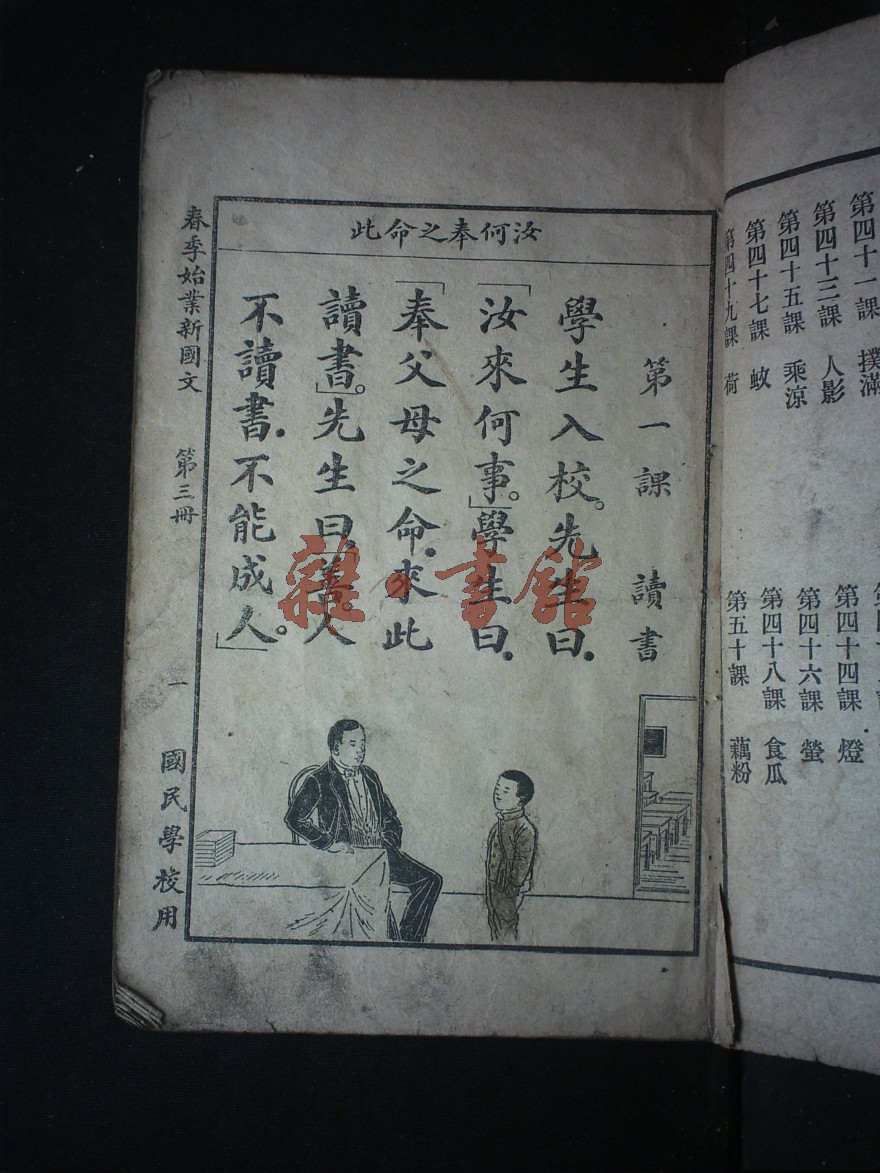 第四十一課 撲滿
第四十三課 人影
第四十五課 乘涼
第四十七課 蚊
第四十九課 荷
第四十四課 燈
第四十六課 螢
第四十八課 食瓜
第五十課 藕粉
汝何奉之命此
第一課 讀書
學生入校。先生曰．
「汝來何事。」學生曰．
「奉父母之命．來此
讀書。」先生曰．「善。人
不讀書．不能成人。」
春季始業新國文 第三冊 一 國民學校用
雜·書館